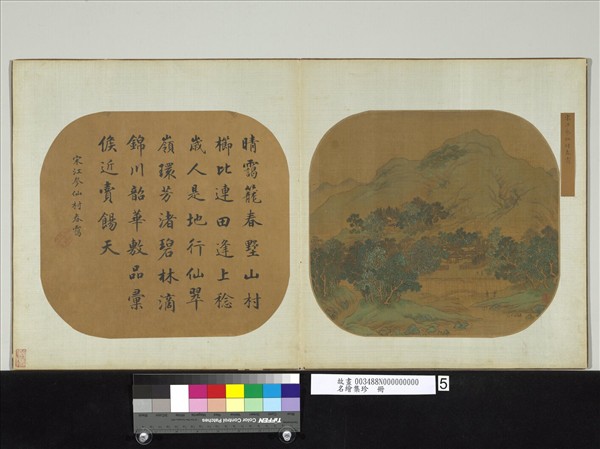 晴靄籠春墅山村
櫛比連田逢上稔
歲人是地行仙翠
嶺環芳渚碧林滴
錦川韶華敷品彙
候近賣餳天
宋江參仙村春靄
故畫 003488N000000000
名繪集珍 冊
5
TIFFEN Color Control Patches